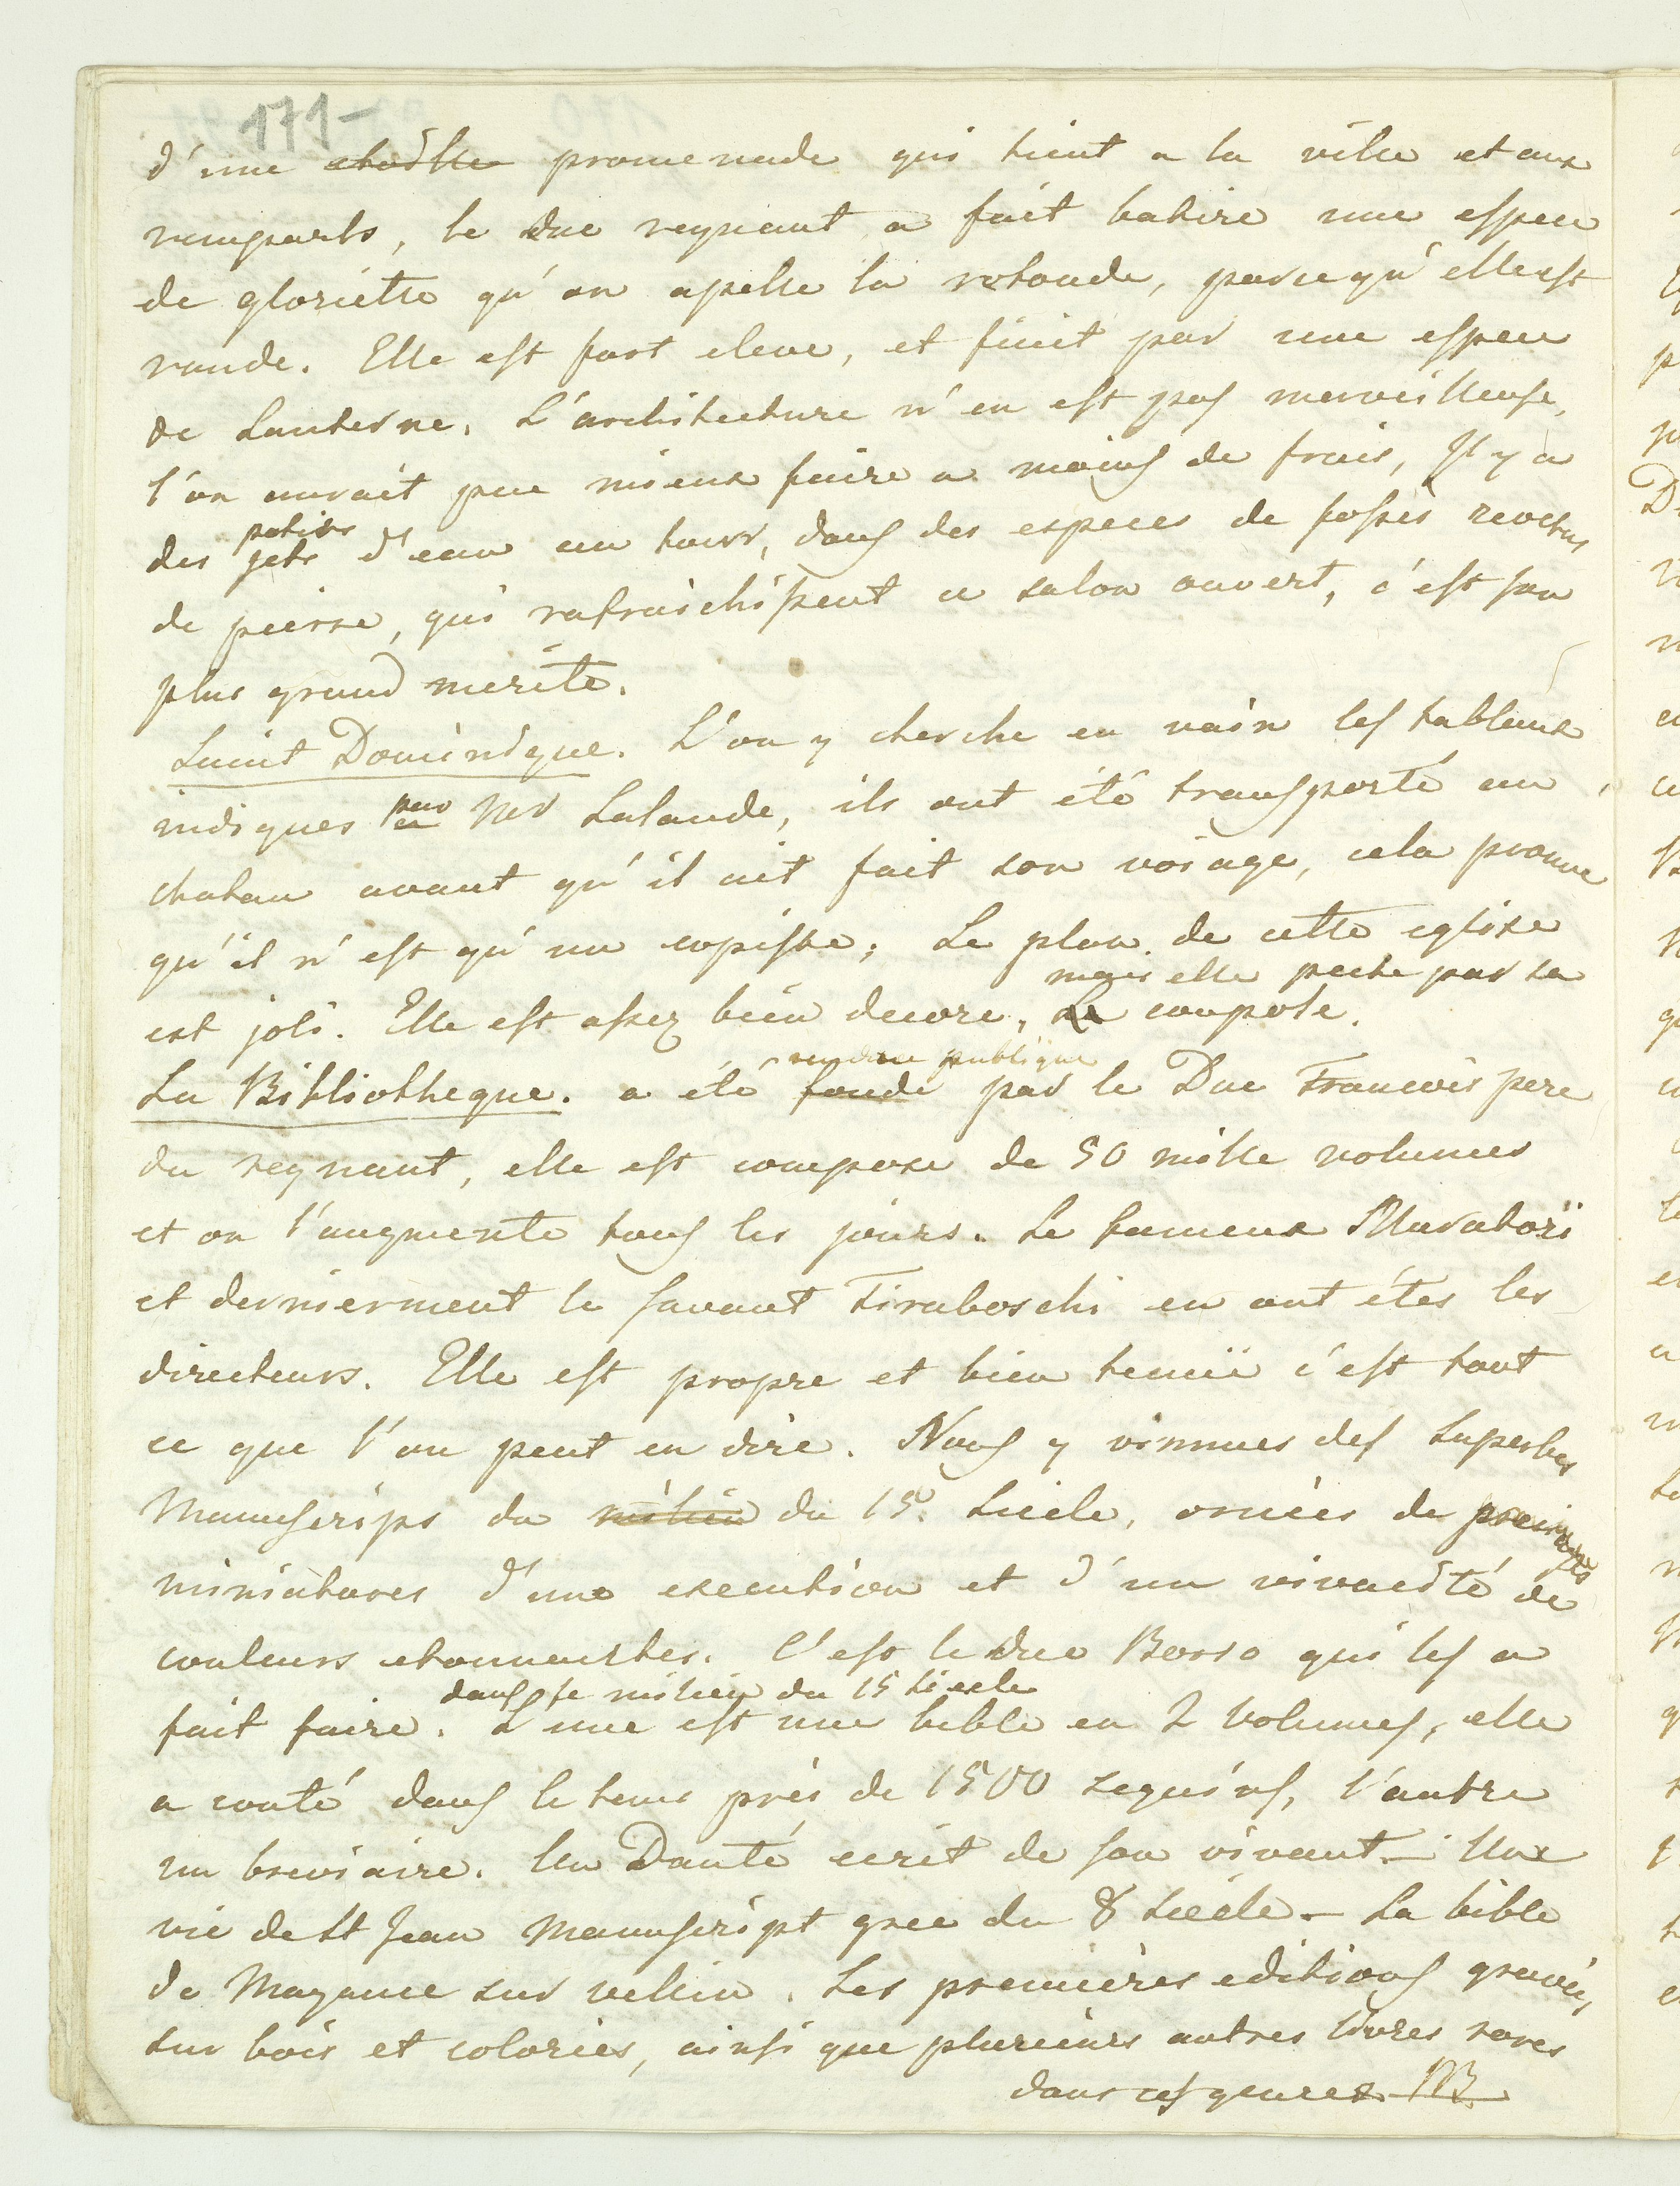 171-
d'une promenade qui tient a la ville et aux
remparts, le duc regnant a fait batire une espece
de gloriette qu'on apelle la rotonde, parcequ'elle est
ronde. Elle est fort eleve, et finit par une espece
de Lanterne. L'architecture n'en est pas merveilleuse,
l'on aurait pue mieux faire a moins de frais, Il y a
petits
des jets d'eau au tour, dans des especes de fossés revetus
de pierre, qui rafraichissent ce salon ouvert, c'est son
plus grand merite.
Saint Dominique. L'on y cherche en vain les tableaux
indiques par Mr Lalande, ils ont été transporté au
chateau avant qu'il ait fait son voiage, cela prouve
qu'il n'est qu'un copiste; Le plan de cette eglise
mais elle peche par sa
est joli. Elle est assez bien decore, coupole.
rendue publique
La Bibliotheque. a été fondé par le Duc Francois pere
du regnant, elle est compose de 50 mille volumes
et on l'augmente tous les jours. Le fameux Muratori
et dernierment le savant Tiraboschi en ont étes les
directeurs. Elle est propre et bien tenuë c'est tout
ce que l'on peut en dire. Nous y vimmes des superbes
Manuscrips du milieu du 15e Siecle, ornées de
miniatures d'une execution et d'un vivacité de
couleurs etonnantes. C'est le duc Borso qui les a
dans le milieu du 15 Siecle
fait faire. L'une est une bible en 2 Volumes, elle
a couté dans le tems près de 1500 sequins, l'autre
un breviaire. Un Dante ecrit de son vivant. - Une
vie de St Jean Manuscript grec du 8 Siecle - La bible
de Mayance sur vellin. Les premières editions gravées
sur bois et coloriés, ainsi que plusieurs autres livres rares
dans ces genres. NB.